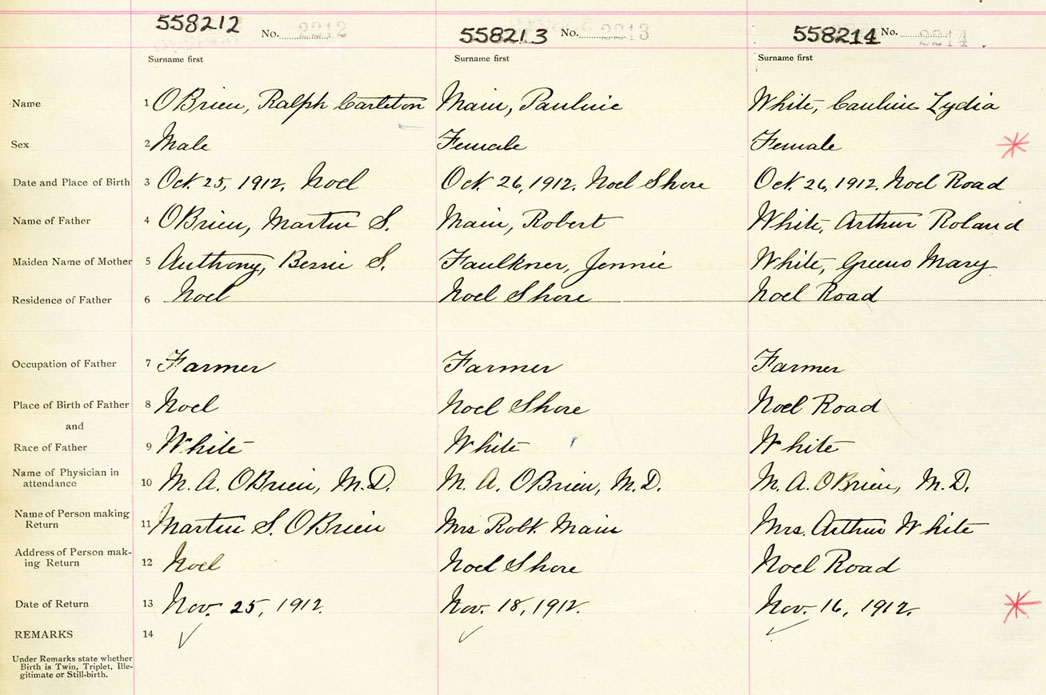 558212 No. 2212 558213 No. 2213 558214 No. 2214
Surname first Surname first Surname first
Name 1 O'Brien, Ralph Carleton Main, Pauline White, Cauline Lydia
Sex 2 Male Female Female
Date and Place of Birth 3 Oct. 25, 1912, Noel Oct. 26, 1912, Noel Shore Oct. 26, 1912, Noel Road
Name of Father 4 O'Brien, Martin S. Main, Robert White, Arthur Roland
Maiden Name of Mother 5 Anthony, Bessie S. Faulkner, Jennie White, Greeno Mary
Residence of Father 6 Noel Noel Shore Noel Road
Occupation of Father 7 Farmer Farmer Farmer
Place of Birth of Father 8 Noel Noel Shore Noel Road
and
Race of Father 9 White White White
Name of Physician in
attendance 10 M. A. O'Brien, M.D. M. A. O'Brien, M.D. M. A. O'Brien, M.D.
Name of Person making
Return 11 Martin S. O'Brien Mrs Robt. Main Mrs. Arthur White
Address of Person mak-
ing Return 12 Noel Noel Shore Noel Road
Date of Return 13 Nov. 25, 1912. Nov. 18, 1912. Nov. 16, 1912.
REMARKS 14
Under Remarks state whether
Birth is Twin, Triplet, Ille-
gitimate or Still-birth.